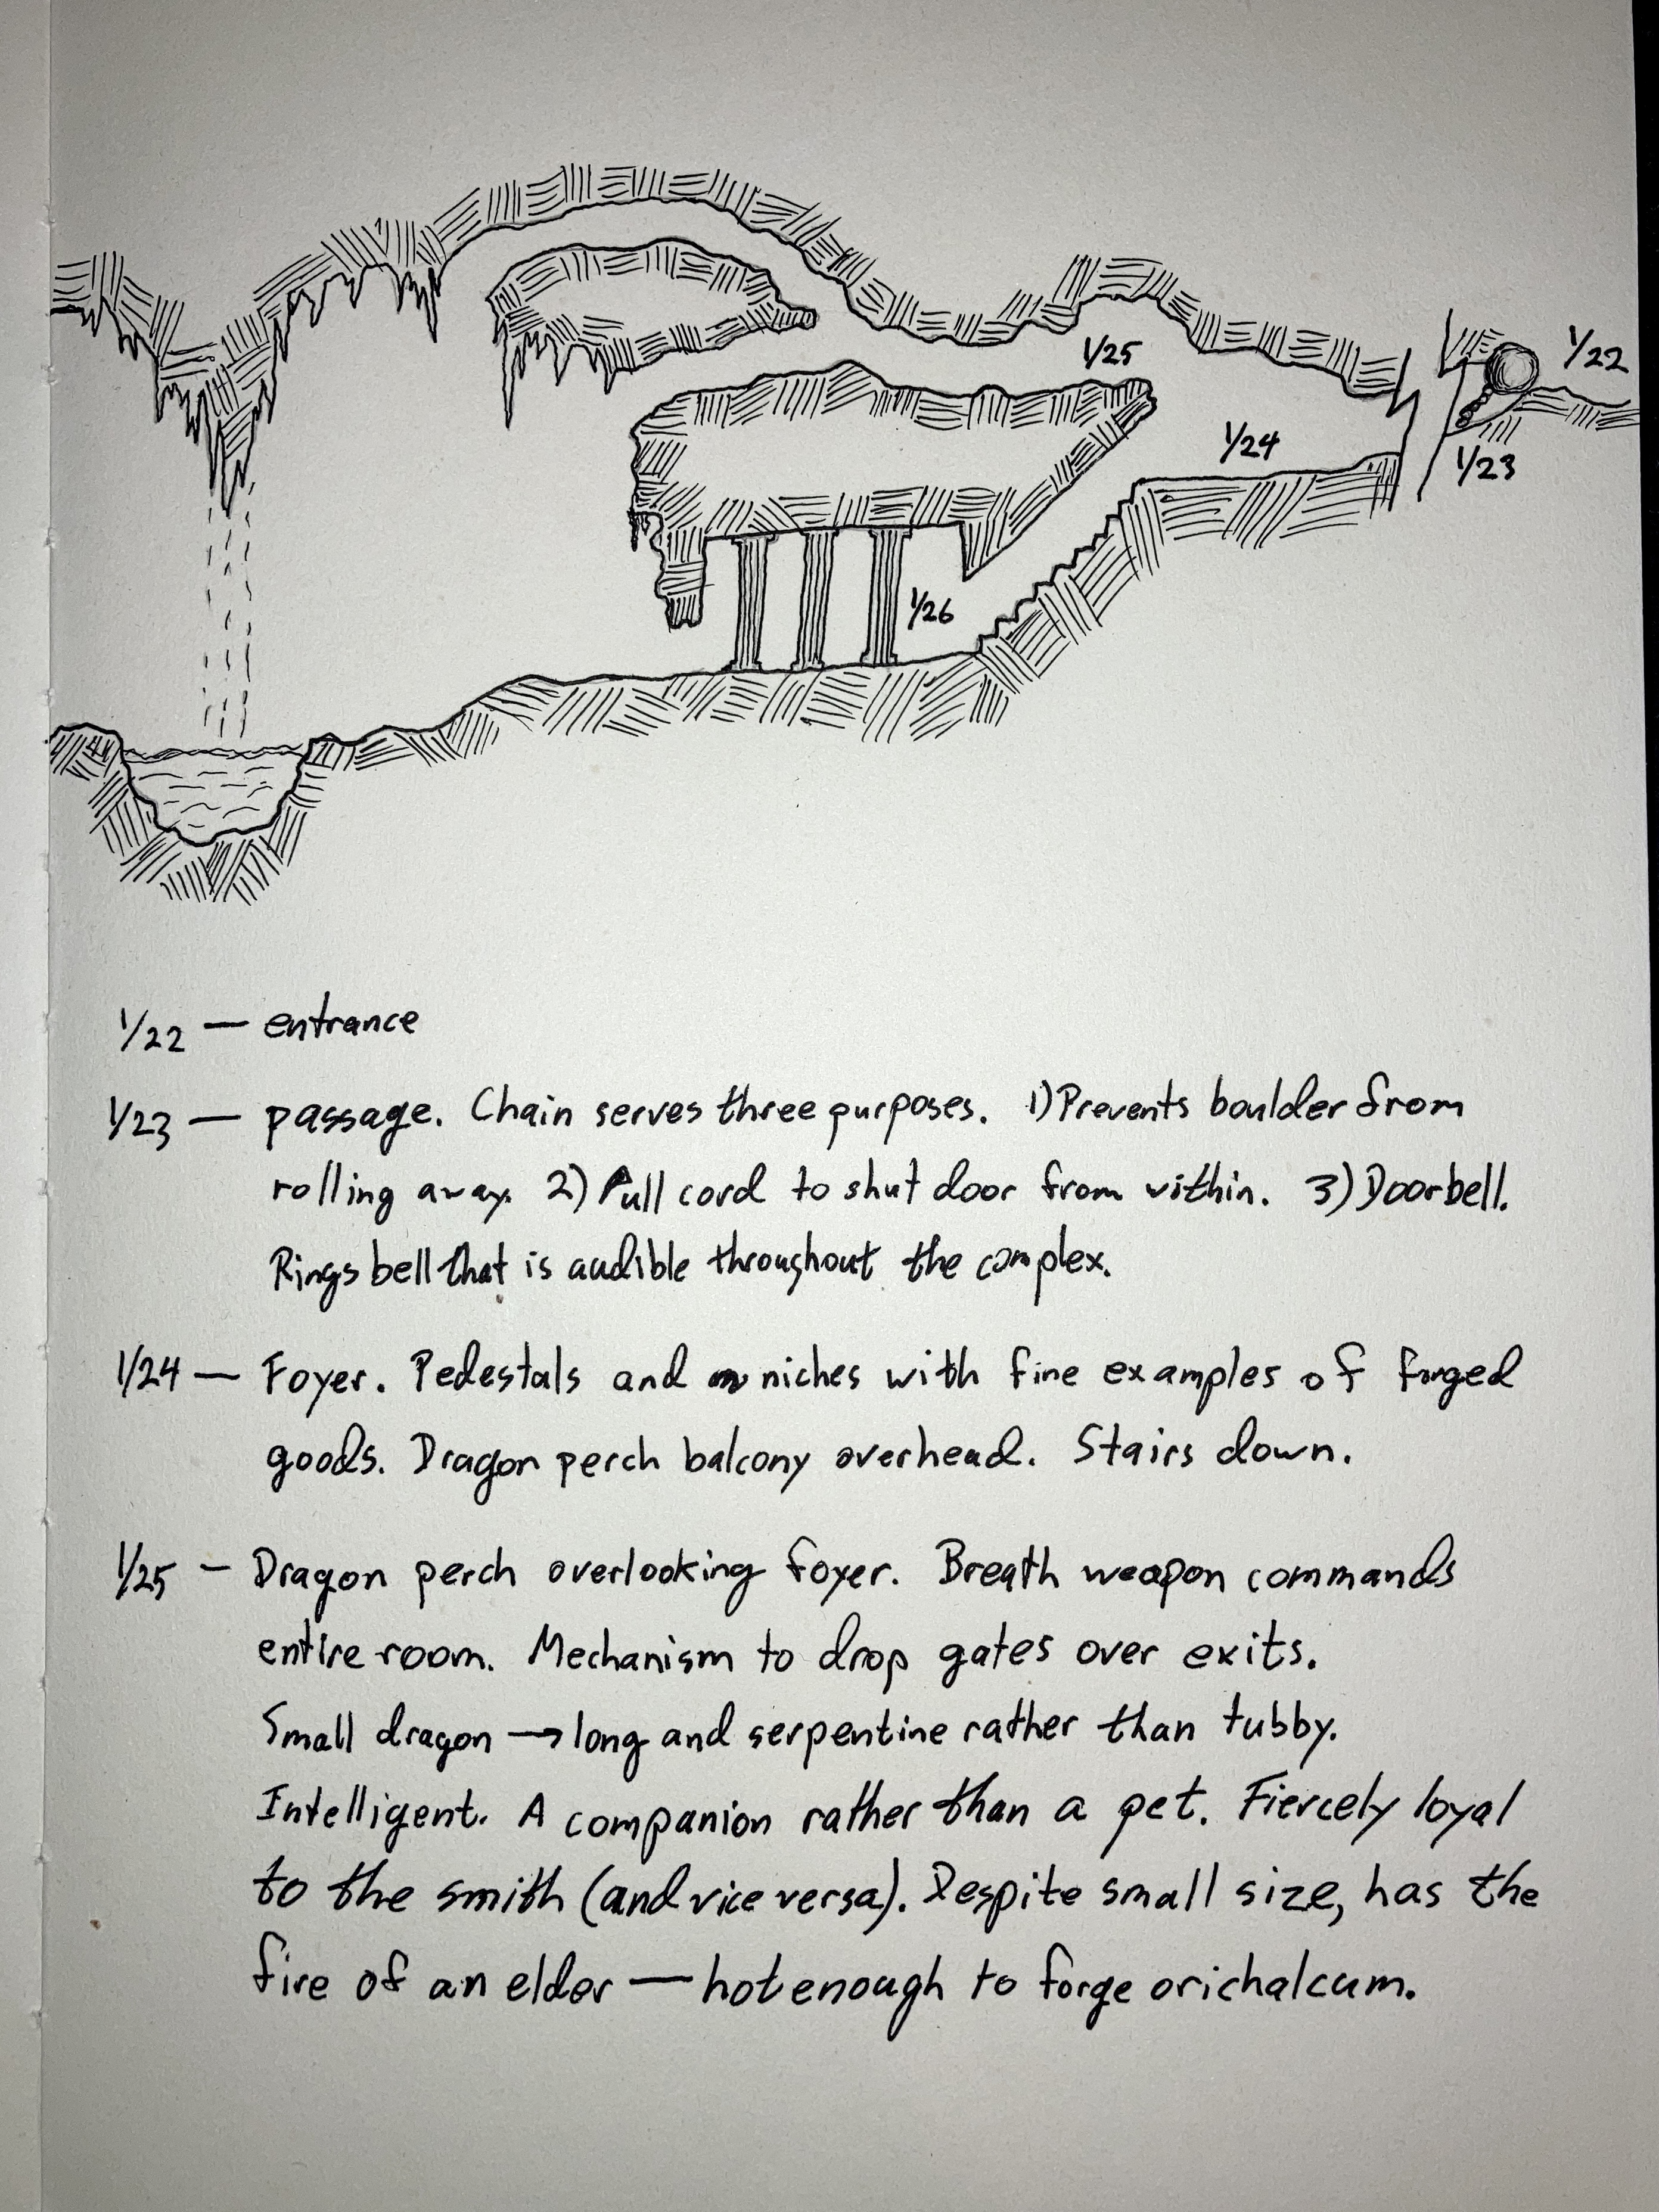 1/22
1/25
1/24
1/23
1/26
1/22 — entrance
1/23 — passage. Chain serves three purposes. 1) Prevents boulder from
rolling away. 2) Pull cord to shut door from within. 3) Doorbell.
Rings bell that is audible throughout the complex.
1/24 — Foyer. Pedestals and niches with fine examples of forged
goods. Dragon perch balcony overhead. Stairs down.
1/25 — Dragon perch overlooking foyer. Breath weapon commands
entire room. Mechanism to drop gates over exits.
Small dragon → long and serpentine rather than tubby.
Intelligent. A companion rather than a pet. Fiercely loyal
to the smith (and vice versa). Despite small size, has the
fire of an elder — hot enough to forge orichalcum.